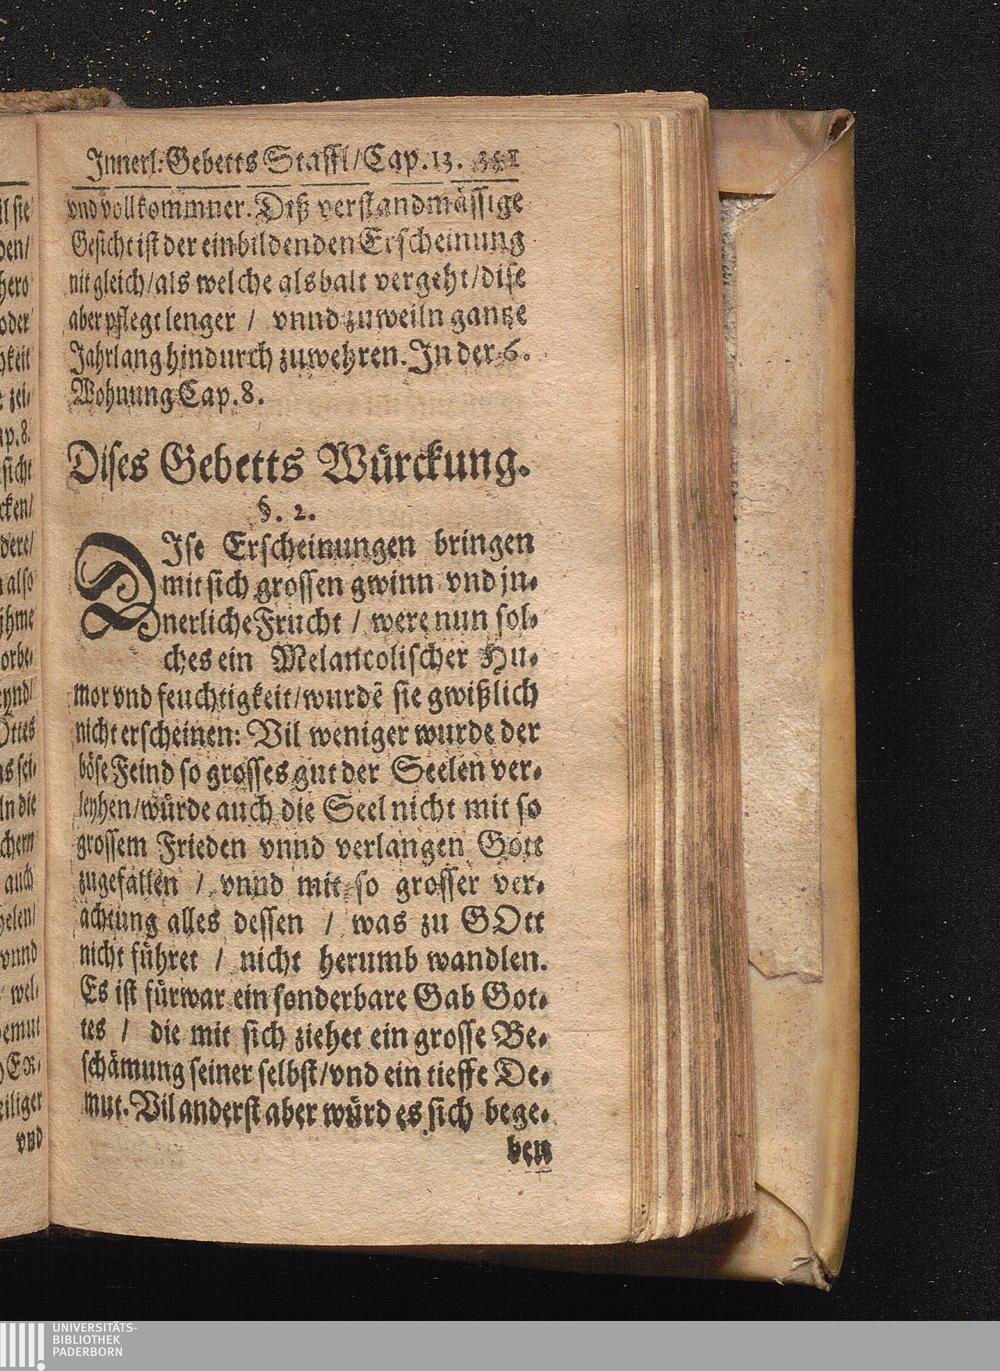 Innerl: Gebetts Staffl / Cap. 13. 351
vnd vollkommner. Diß verstandmässige
Gesicht ist der einbildenden Erscheinung
nit gleich / als welche alsbalt vergeht / dise
aber pflegt lenger / vnnd zuweiln gantze
Jahr lang hindurch zuwehren. In der 6.
Wohnung Cap. 8.
Dises Gebetts Würckung.
§. 2.
DIse Erscheinungen bringen
mit sich grossen gwinn vnd jn-
nerliche Frucht / were nun sol-
ches ein Melancolischer Hu-
mor vnd feuchtigkeit / wurdē sie gwißlich
nicht erscheinen: Vil weniger wurde der
böse Feind so grosses gut der Seelen ver-
leyhen / würde auch die Seel nicht mit so
grossem Frieden vnnd verlangen Gott
zugefallen / vnnd mit so grosser ver-
achtung alles dessen / was zu GOtt
nicht führet / nicht herumb wandlen.
Es ist fürwar ein sonderbare Gab Got-
tes / die mit sich ziehet ein grosse Be-
schämung seiner selbst / vnd ein tieffe De-
mut. Vil anderst aber würd es sich bege-
ben
il sie
den /
hero
oder
gkeit
zei-
ap. 8.
sicht
cken /
dere /
also
ihme
orbe-
eynd /
Ottes
as sei-
In die
chern
auch
helen /
vnnd
wel-
emut
ER-
eiliger
vnd
UNIVERSITÄTS-
BIBLIOTHEK
PADERBORN